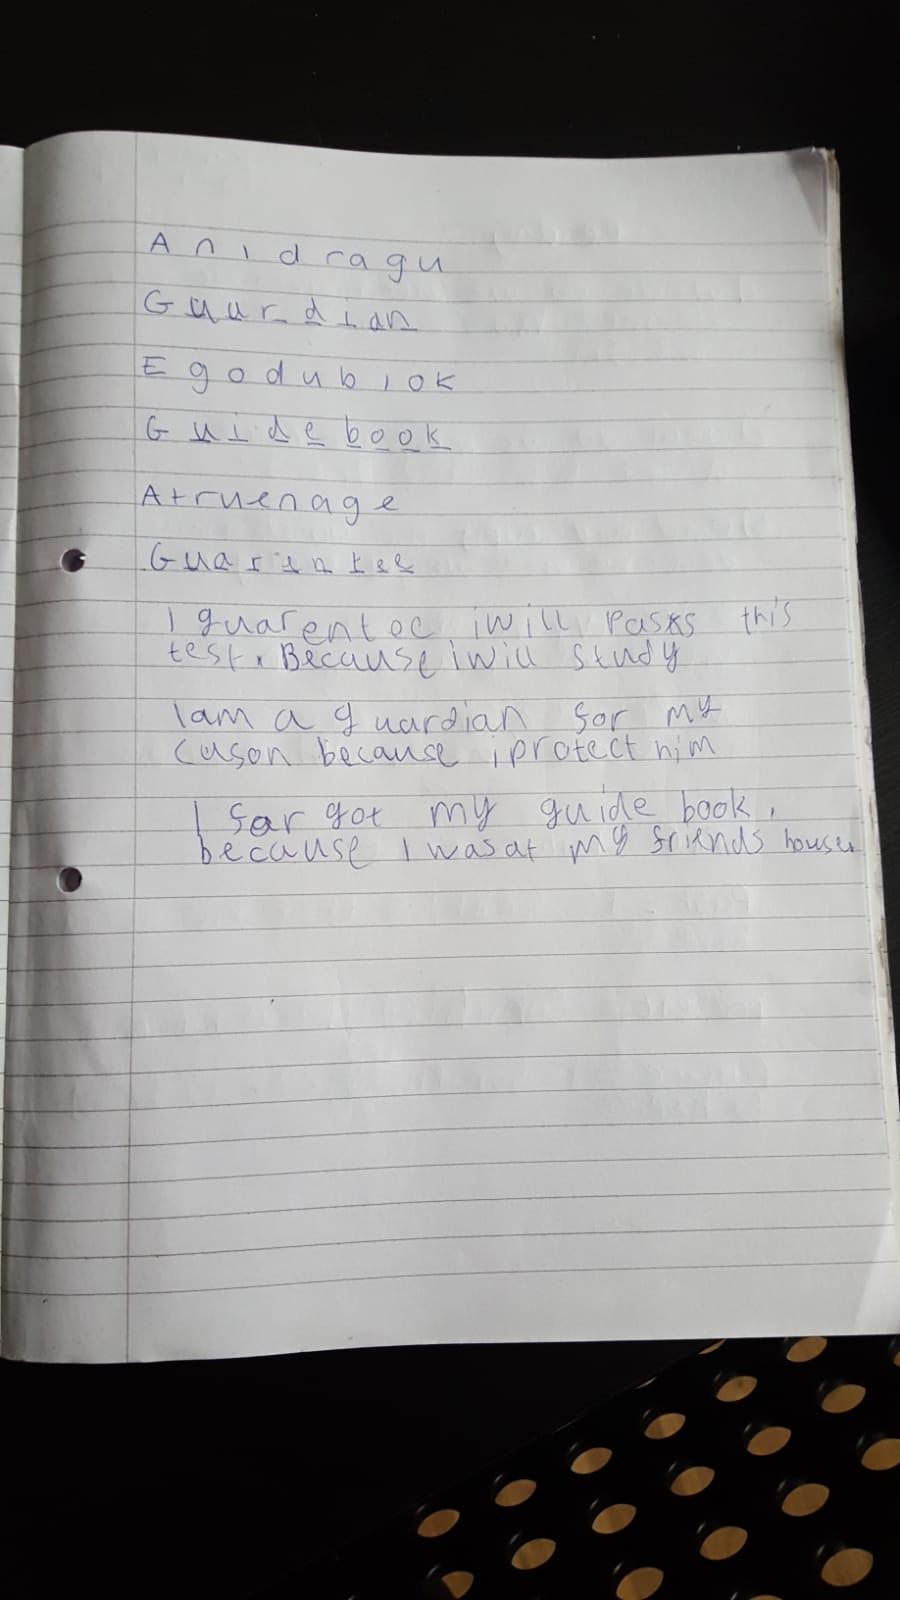 Anidragu
Guurdian
Egodubiok
Guidebook
Atruenage
Guarintee
I guarentee i will pasks this
test. Because i will study
I am a guardian for my
cuson because i protect him
I forgot my guide book,
because I was at my friends house.